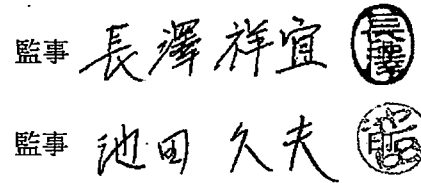 監事 長澤祥宜 長澤
監事 池田久夫 池田